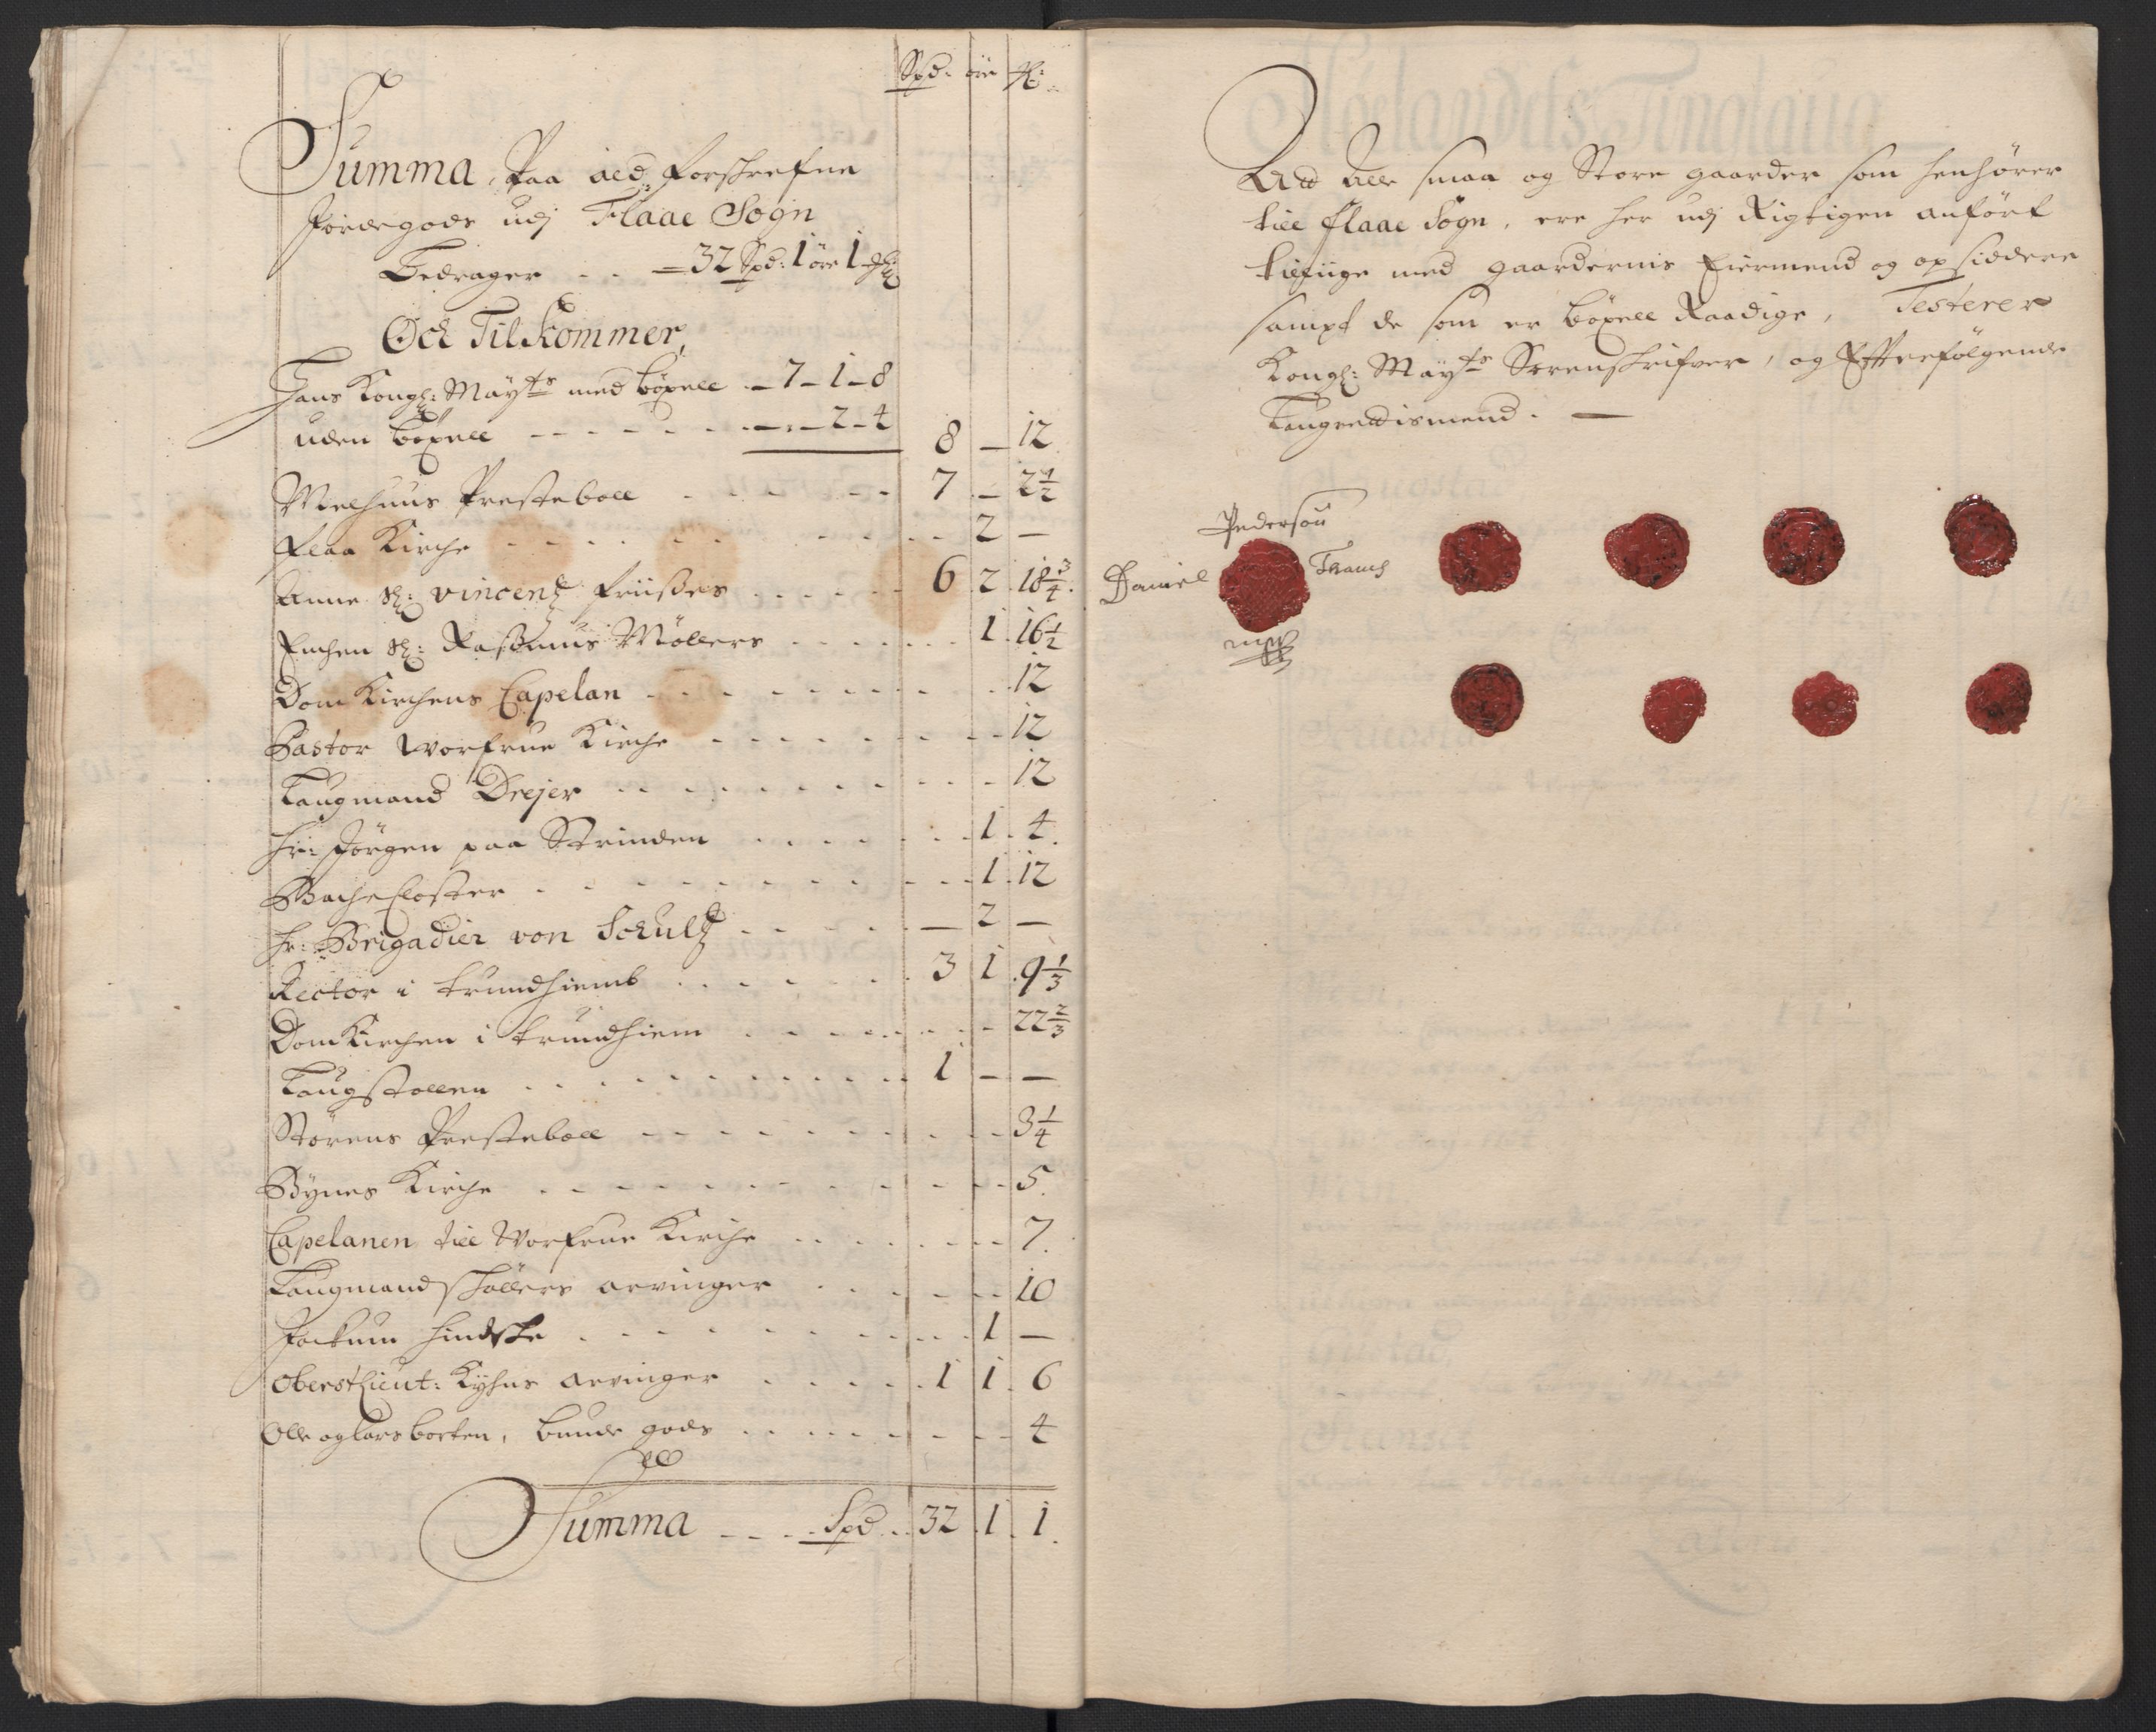 Spd: øre ꝑ:
Summa, Paa aed forskrefne
Jordegods udj Flaae Sogn
Bedrager - - - 32 Spd: 1 øre 1
Och Tilkommer,
Hans Kongl: Mayts med böxell - 7 - 1 - 8
uden böxell - - - - - - - 2 - 4 8 - 12
Melhuus Presteboll - - - - - 7 - 2 1/2
Flaa Kirche - - - - - 2 -
Anne Sl: Vincentz Friisses - - - - 6 2 18 3/4
Enchen Sl: Rasmus Möllers - - - - 1 16 1/2
Dom Kirchens Capelan - - - - 12
Pastor Worfrue Kirche - - - - 12
Laugmand Drejer - - - - 12
Hr: Jörgen paa Strinden - - - - 1 4
Bache Closter - - - - 1 12
Hr: Brigadier von Schultz - - - - - 2 -
Rector i trundhiemb - - - - 3 1 9 1/3
Dom Kirchen i trundhiem - - - - 22 2/3
Laugstollen - - - - 1 - -
Störens Presteboll - - - - 3 1/4
Bynes Kirche - - - - 5
Capelanen till Worfrue Kirche - - - - 7
Laugmand Schöllers arvinger - - - - 10
Jockum Hindske - - - - 1 -
Oberstlieut: Kyhns arvinger - - - - 1 1 6
Olle og Lars borten, bunde gods - - - - 4
Summa - - - Spd - 32 1 1
At alle smaa og Store gaarder som henhörer
till Flaae Sogn, ere her udj Rigtigen anfört
tillige med gaardernis Eiermend og opsiddere
sampt de som er böxell Raadige, Testerer
Kongl: Mayts Sorenskrifver, og Effterfölgende
Laugrettismend. -
Pedersøn
Daniel Thams
mpp